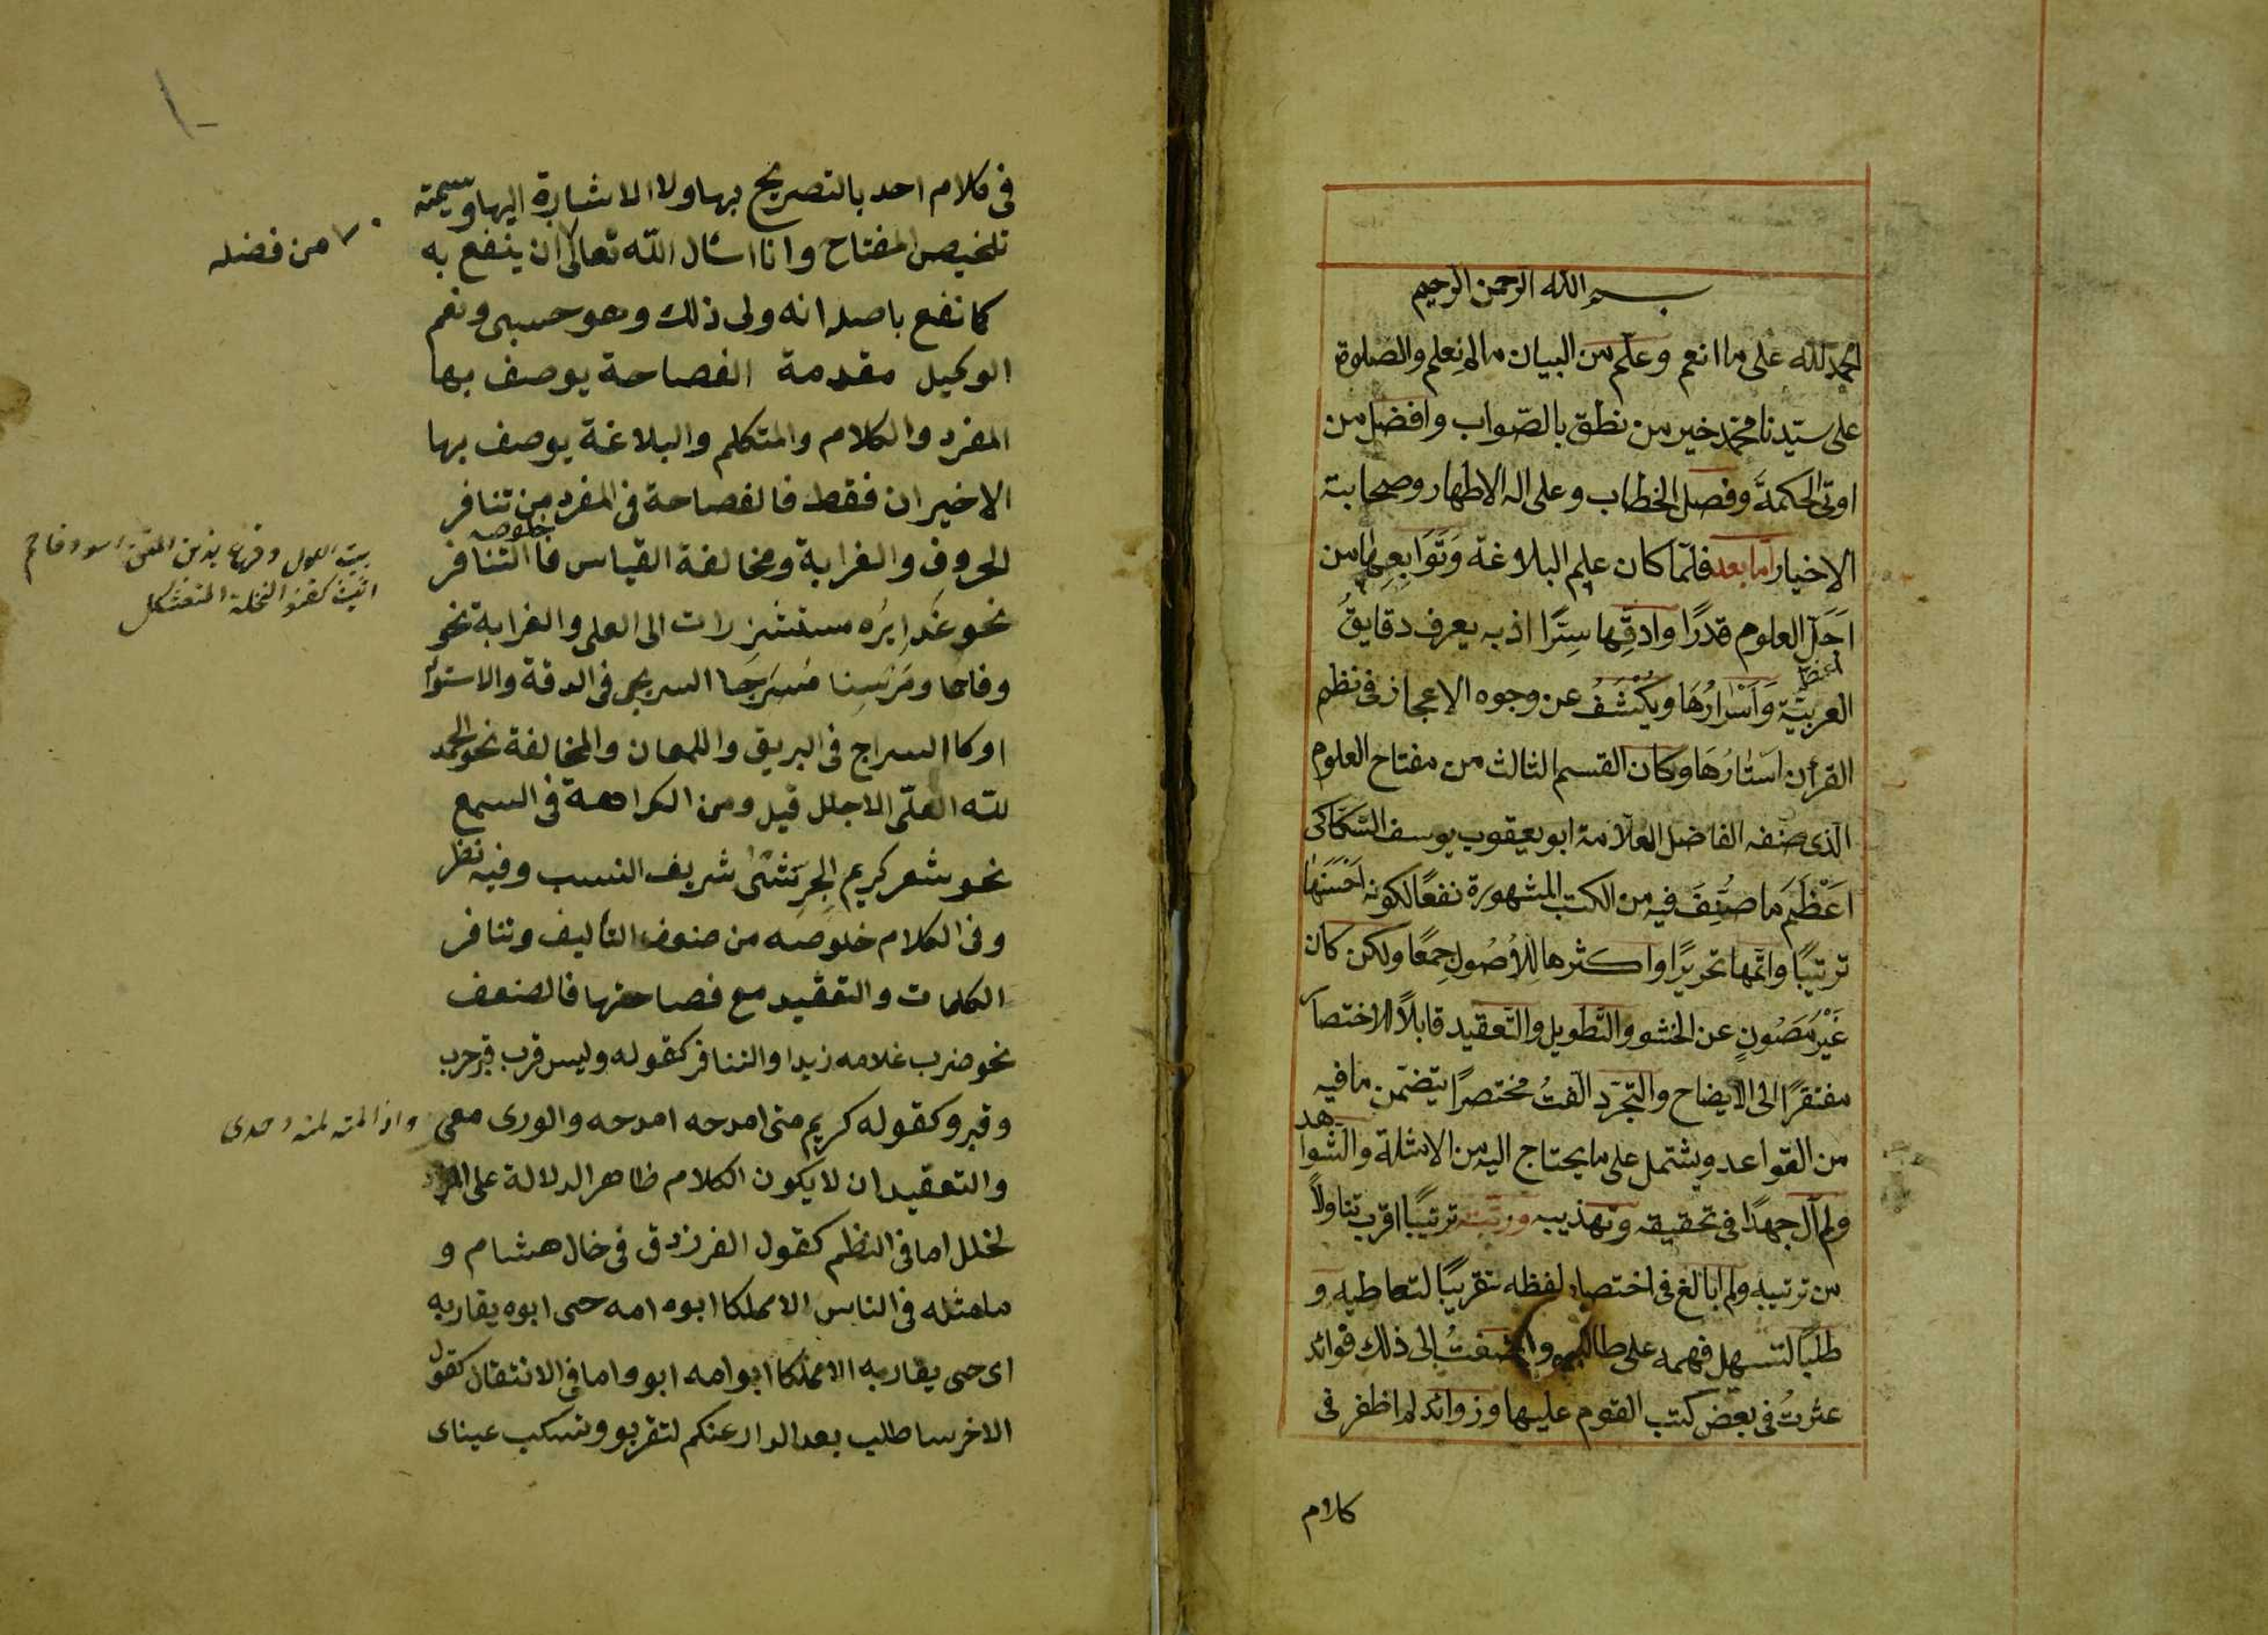 بسم الله الرحمن الرحيم
الحمد لله على ما انعم وعلم من البيان ما لم نعلم والصلوة
على سيّدنا محمّد خير من نطق بالصّواب وافضل من
اوتى الحكمة وفصل الخطاب وعلى اله الاطهار وصحابته
الاخيار اما بعد فلمّا كان علم البلاغة وَتَوَابِعِهَا من
اَجَلّ العلوم قدرًا وادقّها سِرًّا اذ به يعرف دقايقُ
العربيّة وَاَسْرَارُهَا ويُكْشَفُ عن وجوه الاعجاز فى نظم
القرأن اَستارُهَا وكان القسم الثالث من مفتاح العلوم
الّذى صنفه الفاضل العلّامة ابو يعقوب يوسف السّكاكى
اَعْظَمَ ما صُنِّفَ فيه من الكتب المشهورة نفعًا لكونه اَحْسَنَهَا
ترتيبًا واتمّها تحريرًا واكثرها لِلاُصُولِ جمعًا ولكن كان
غَيْرَ مَصُونٍ عن الحشو والتّطويل والتّعقيد قابلاً للاختصار
مفتقرًا الى الايضاح والتّجرّد الّفتُ مختصرًا يتضمّن ما فيه
من القواعد ويشتمل على ما يحتاج اليه من الامثلة والشّواهد
ولم آل جهدًا فى تحقيقه وتهذيبه ورتبته ترتيبًا اقرب تناولاً
من ترتيبه ولم ابالغ فى اختصار لفظه تقريبًا لتعاطيه و
طلبًا لتسهيل فهمه على طالبيه واضفتُ الى ذلك فوائد
عثرتُ فى بعض كتب القوم عليها وزوائد لم اظفر فى
كلام
فى كلام احد بالتصريح بها ولا الاشارة اليها وسميته
تلخيص المفتاح وانا اسال الله تعالى ان ينفع به
من فضله
كما نفع باصله انه ولى ذلك وهو حسبى ونعم
الوكيل مقدمة الفصاحة يوصف بها
المفرد والكلام والمتكلم والبلاغة يوصف بها
الاخيران فقط فالفصاحة فى المفرد من تنافر
خلوصه
الحروف والغرابة ومخالفة القياس فالتنافر
نحو غَدايرُه مستشزرات الى العلى والغرابة نحو
وفاحما ومَرْسِنا مُسَرجَا السريجى فى الدقة والاستواء
او كا السراج فى البريق واللمعان والمخالفة نحو الحمد
لله العلىّ الاجلل قيل ومن الكراهة فى السمع
نحو شعر كريم الجِرِشّى شريف النسب وفيه نظر
وفى الكلام خلوصه من ضعف التأليف وتنافر
الكلمات والتعقيد مع فصاحتها فالضعف
نحو ضرب غلامه زيدا والتنافر كقوله وليس قرب قبر حرب
وقبر وكقوله كريم متى امدحه امدحه والورى معى
واذا لمته لمته وحدى
والتعقيد ان لا يكون الكلام ظاهر الدلالة على المراد
لخلل اما فى النظم كقول الفرزدق فى خال هشام و
ما مثله فى الناس الا مملكا ابو امه حى ابوه يقاربه
اى حى يقاربه الا مملكا ابو امه ابوه واما فى الانتقال كقول
الاخر ساطلب بعد الدار عنكم لتقربو وتسكب عيناى